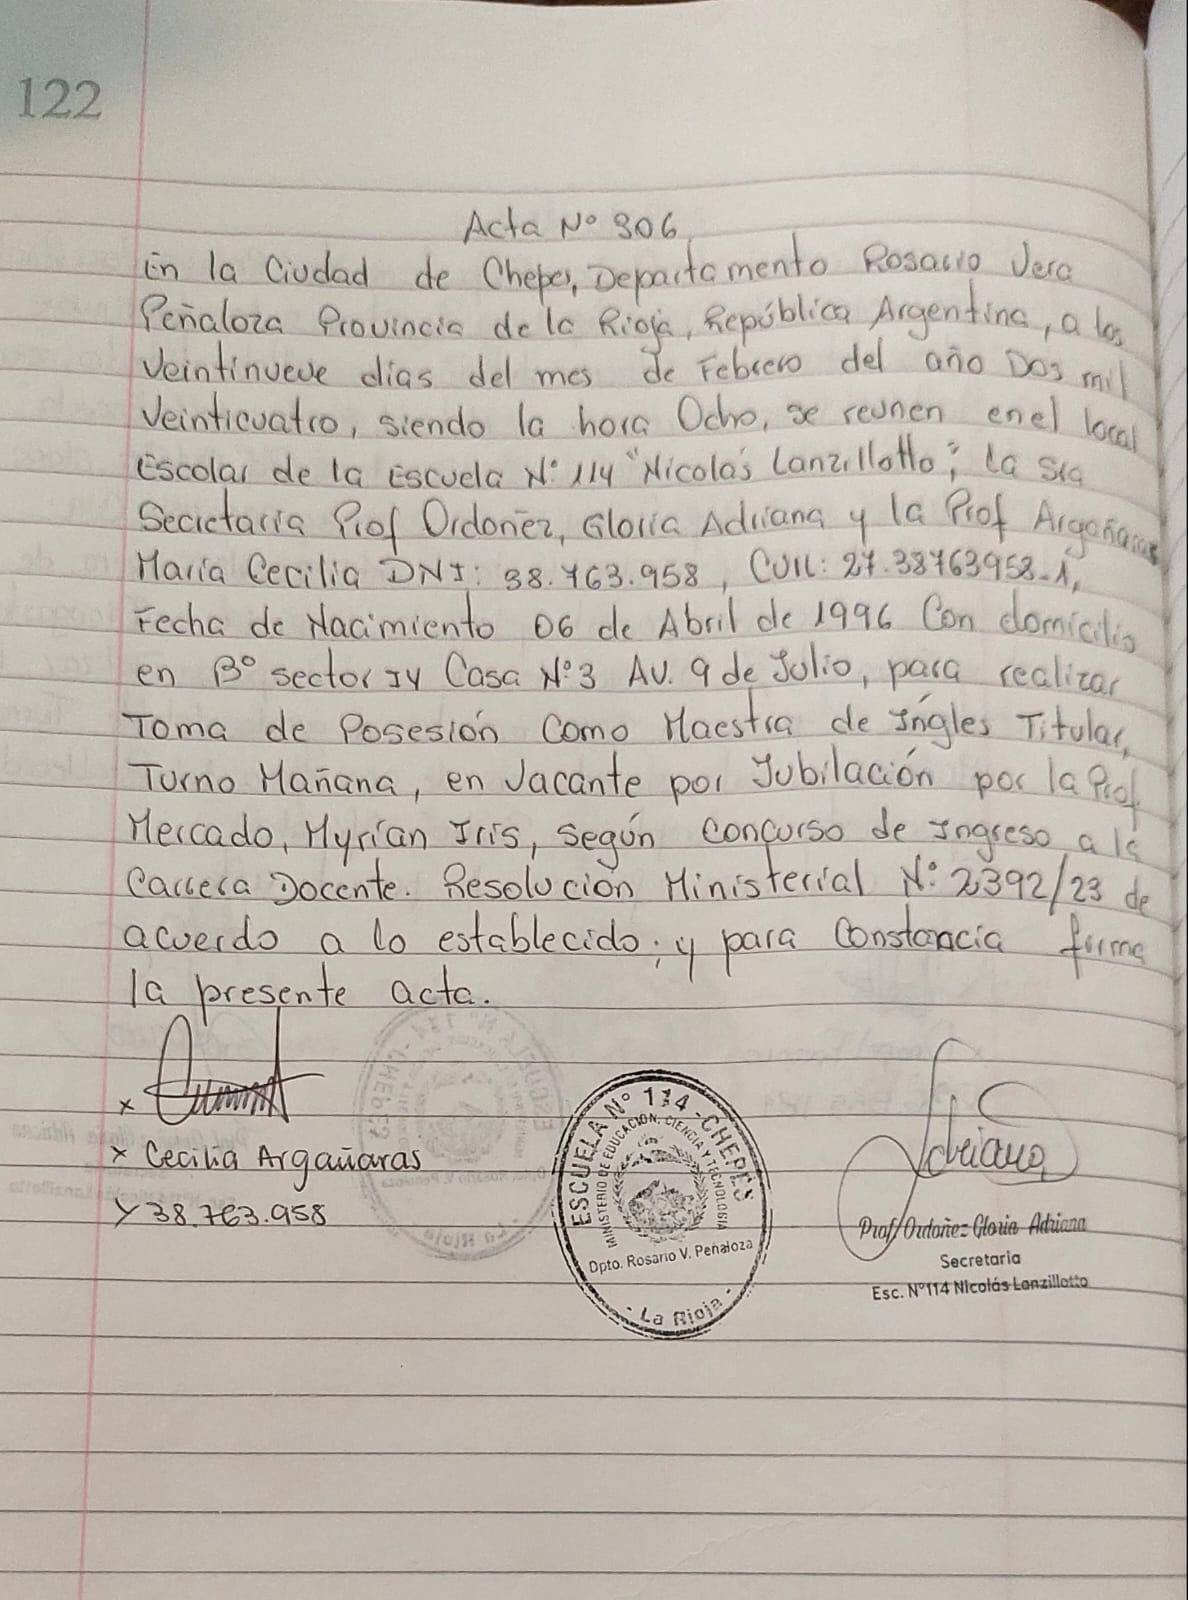 122
Acta Nº 306
En la Ciudad de Chepes, Departamento Rosario Vera
Peñaloza Provincia de la Rioja, República Argentina, a los
veintinueve días del mes de Febrero del año Dos mil
veinticuatro, siendo la hora Ocho, se reunen en el local
Escolar de la Escuela Nº 114 "Nicolás Lanzillotto"; la Sra
Secretaria Prof Ordoñez, Gloria Adriana y la Prof Argañaras
María Cecilia DNI: 38.763.958, CUIL: 27.38763958-1,
Fecha de Nacimiento 06 de Abril de 1996 Con domicilio
en Bº sector IV Casa Nº3 AV. 9 de Julio, para realizar
Toma de Posesión Como Maestra de Ingles Titular,
Turno Mañana, en Vacante por Jubilación por la Prof
Mercado, Myrían Iris, según concurso de Ingreso a la
Carrera Docente. Resolución Ministerial Nº 2392/23 de
acuerdo a lo establecido; y para Constancia firma
la presente acta.
x
x Cecilia Argañaras
x 38.763.958
ESCUELA Nº 114 - CHEPES
MINISTERIO DE EDUCACION, CIENCIA Y TECNOLOGIA
Dpto. Rosario V. Peñaloza
- La Rioja -
Adriana
Prof. Ordoñez Gloria Adriana
Secretaria
Esc. Nº114 Nicolás Lanzillotto